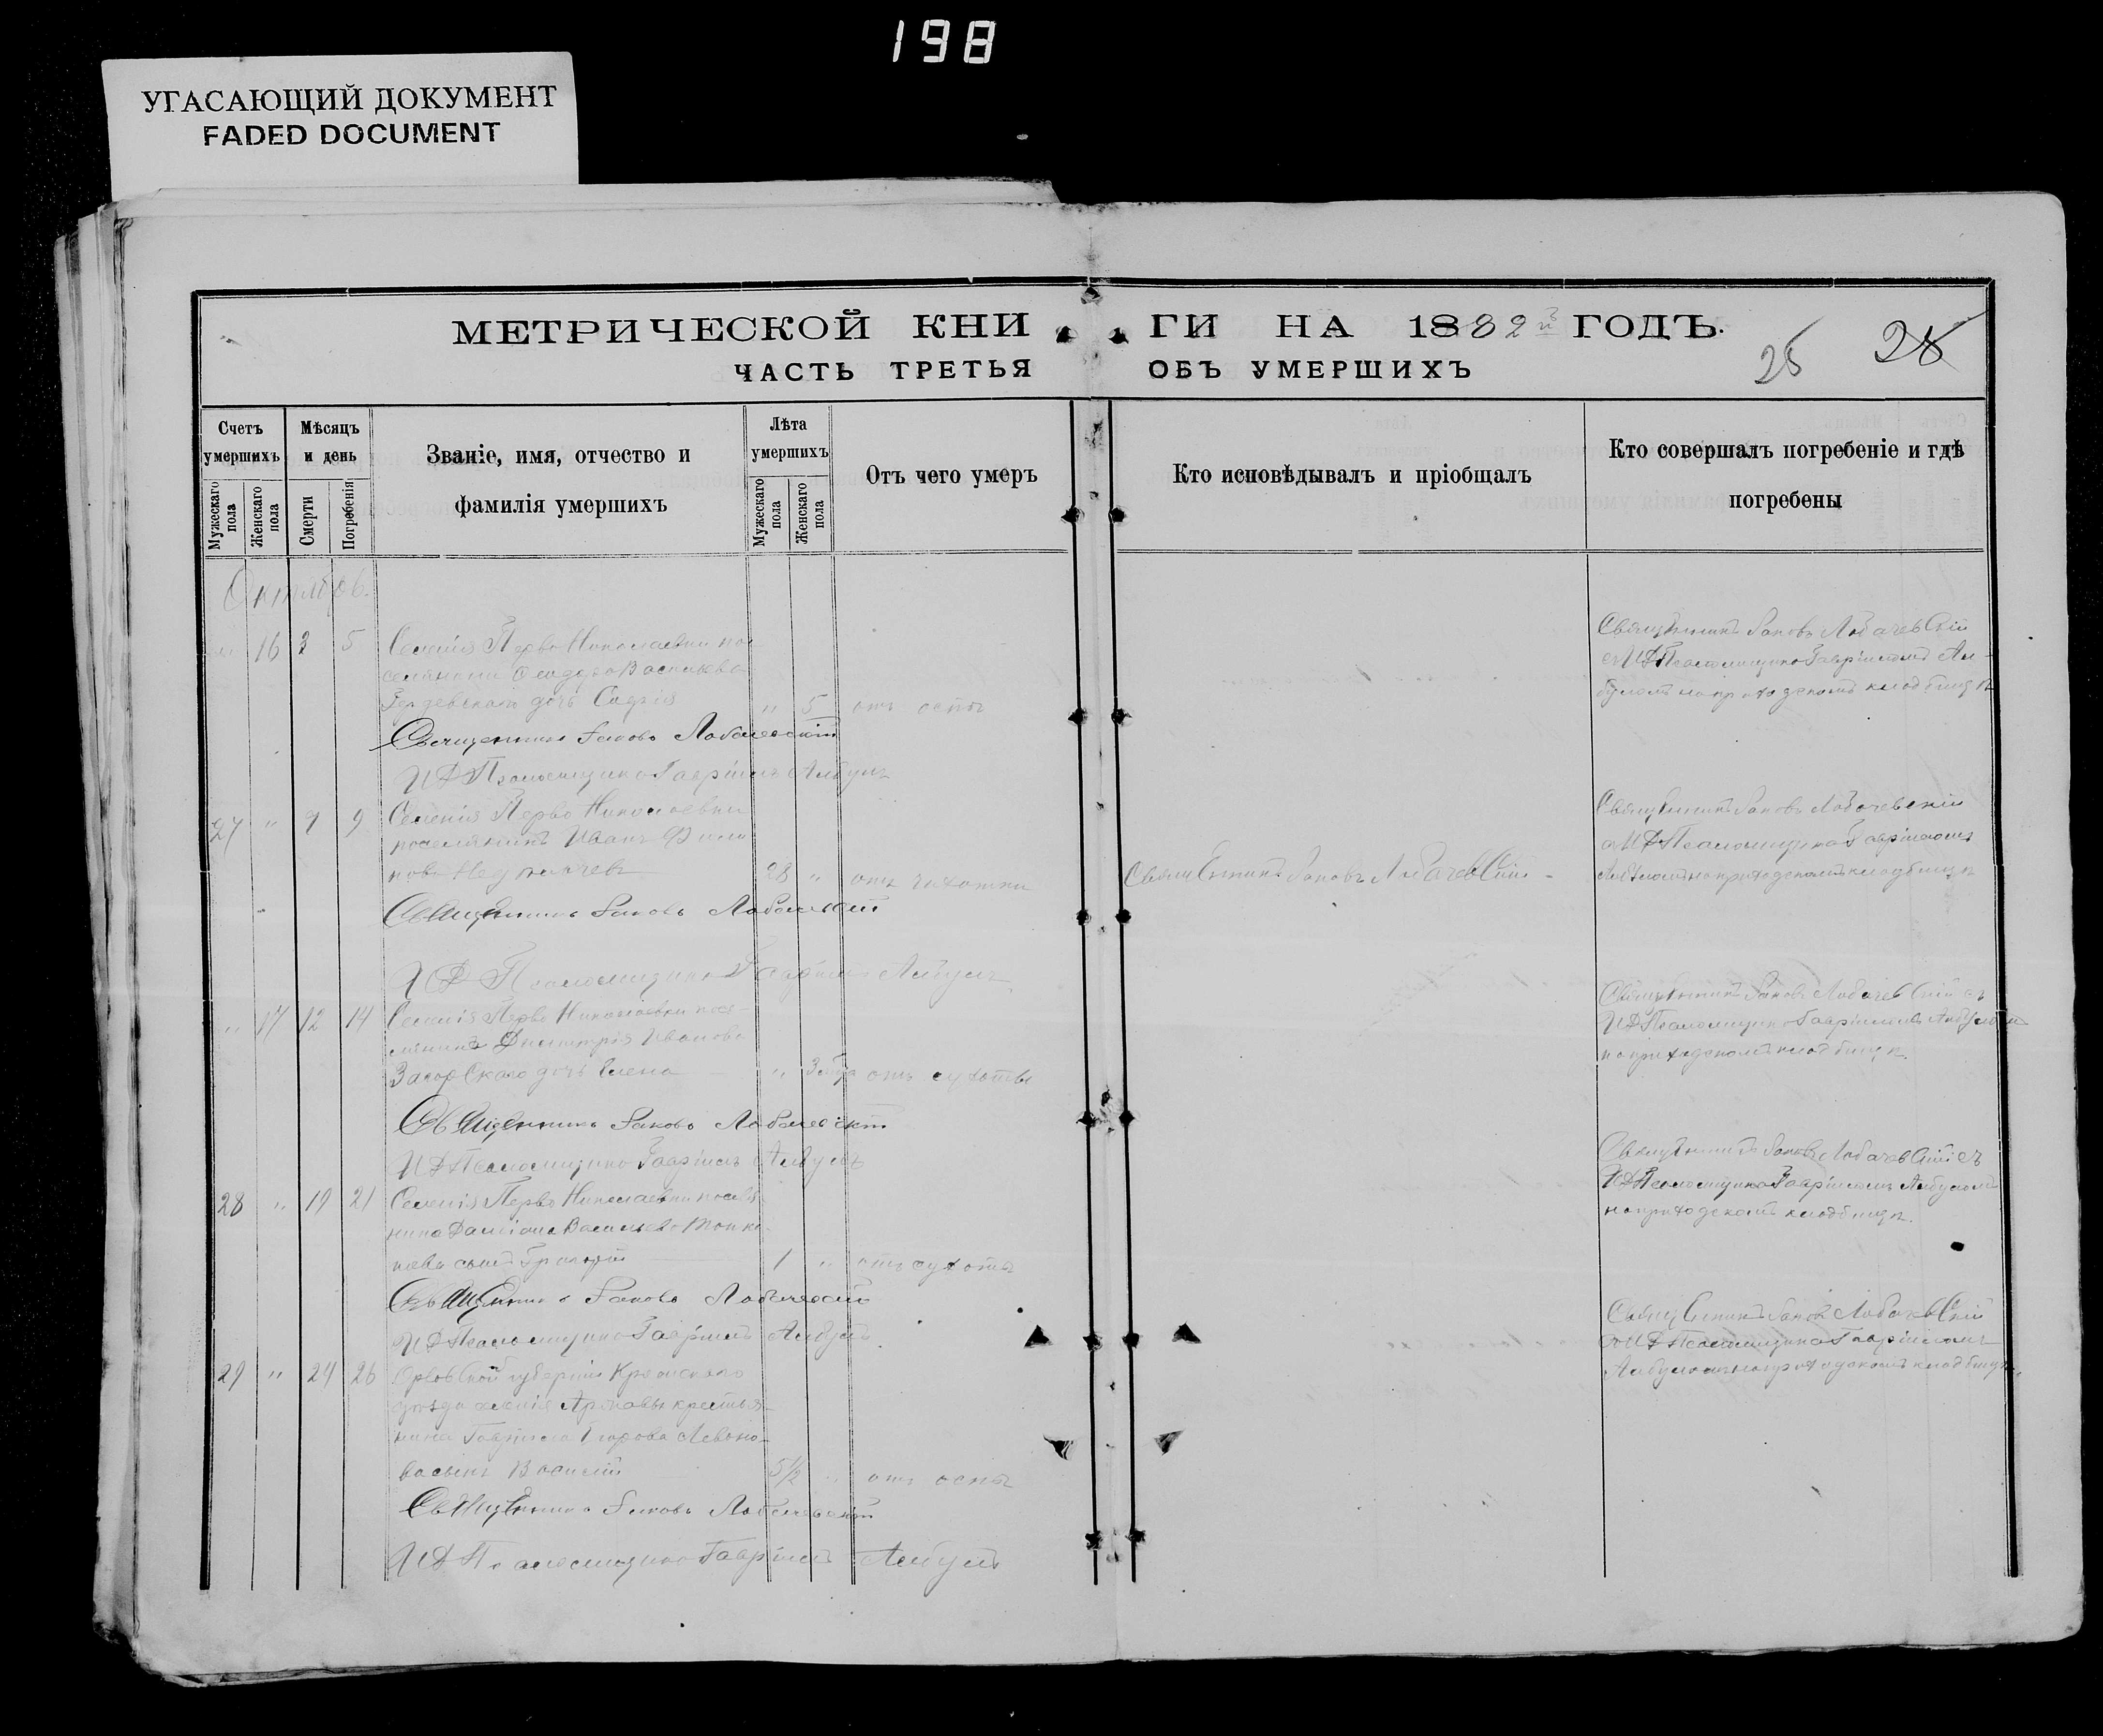 198
УГАСАЮЩИЙ ДОКУМЕНТ
FADED DOCUMENT
МЕТРИЧЕСКОЙ КНИГИ НА 1882й ГОДЪ.
ЧАСТЬ ТРЕТЬЯ ОБЪ УМЕРШИХЪ
25 28
Счетъ умершихъ
Мужескаго пола
Женскаго пола
Мѣсяцъ и день
Смерти
Погребенія
Званіе, имя, отчество и
фамилія умершихъ
Лѣта умершихъ
Мужескаго пола
Женскаго пола
Отъ чего умеръ
Кто исповѣдывалъ и пріобщалъ
Кто совершалъ погребеніе и гдѣ
погребены
Октябрь.
16 3 5 Селенія Перво Николаевки по-
селянина Ѳеодора Васильева
дочь Софія " 5 отъ оспы
Священникъ Іаковъ Лобачевскій
ИД Псаломщика Гавріилъ Албулъ
Священникъ Іаковъ Лобачевскій
съ ИД Псаломщика Гавріиломъ Ал-
буломъ на приходскомъ кладбищѣ
27 " 7 9 Селенія Перво Николаевки
поселянинъ Иванъ Фили
28 " отъ чахотки
Священникъ Іаковъ Лобачевскій
Священникъ Іаковъ Лобачевскій
ИД Псаломщика Гавріилъ Албулъ
Священникъ Іаковъ Лобачевскій
съ ИД Псаломщика Гавріиломъ
Албуломъ на приходскомъ кладбищѣ
" 17 12 14 Селенія Перво Николаевки посе-
лянина Димитрія Иванова
Загорскаго дочь Елена " отъ сухоты
Священникъ Іаковъ Лобачевскій
ИД Псаломщика Гавріилъ Албулъ
Священникъ Іаковъ Лобачевскій съ
ИД Псаломщика Гавріиломъ Албуломъ
на приходскомъ кладбищѣ.
28 " 19 21 Селенія Перво Николаевки поселя-
нина Даміана Васильева
сынъ Григорій 1 " отъ сухоты
Священникъ Іаковъ Лобачевскій
ИД Псаломщика Гавріилъ Албулъ
Священникъ Іаковъ Лобачевскій съ
ИД Псаломщика Гавріиломъ Албуломъ
на приходскомъ кладбищѣ.
29 " 24 26 Орловской губерніи Кромскаго
уѣзда селенія крестья-
нина Гавріила Егорова Левоно-
ва сынъ Василій 5½ " отъ оспы
Священникъ Іаковъ Лобачевскій
ИД Псаломщика Гавріилъ Албулъ
Священникъ Іаковъ Лобачевскій
съ ИД Псаломщика Гавріиломъ
Албуломъ на приходскомъ кладбищѣ.